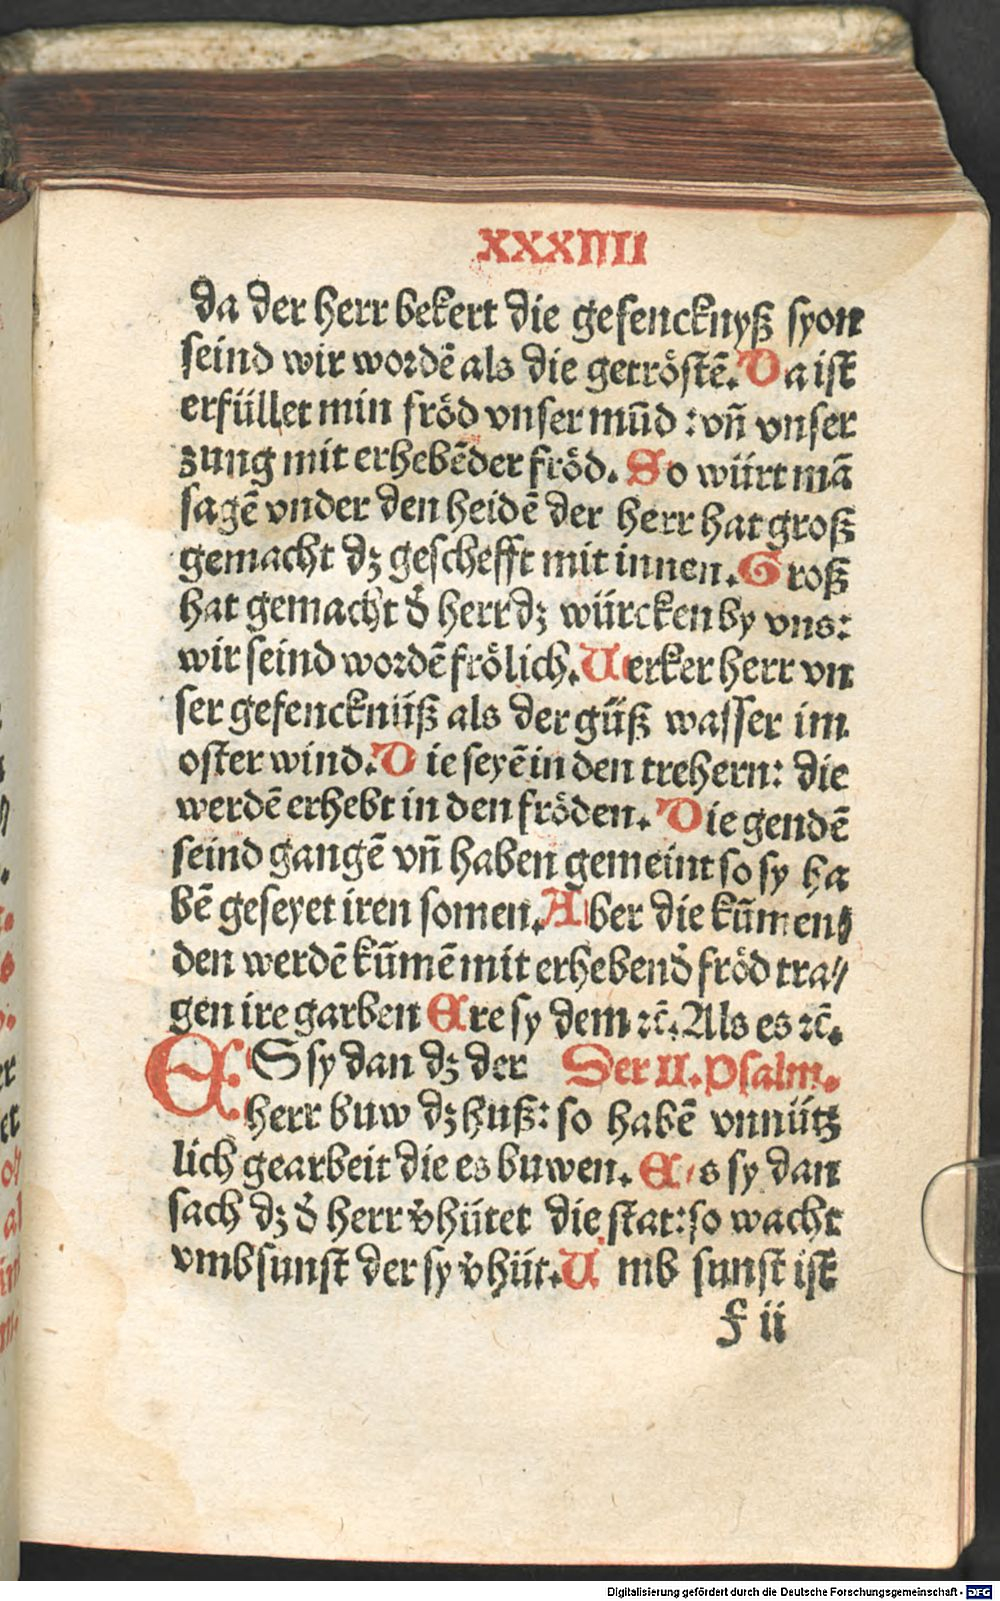 XXXIIII
da der herr bekert die gefencknyß syon
seind wir wordē als die getröstē. Da ist
erfüllet min fröd vnser mūd : vn̄ vnser
zung mit erhebēder fröd. So würt mā
sagē vnder den heidē der herr hat groß
gemacht dz geschefft mit innen. Groß
hat gemacht d̕ herr dz würcken by vns:
wir seind wordē frölich. Uerker herr vn
ser gefencknüß als der güß wasser im
oster wind. Die seyē in den trehern: die
werdē erhebt in den fröden. Die gendē
seind gangē vn̄ haben gemeint so sy ha
bē geseyet iren somen. Aber die kūmen
den werdē kūmē mit erhebend̕ fröd tra//
gen ire garben Ere sy dem ⁊c̄. Als es ⁊c̄.
ES sy dan dz der Der II. psalm.
herr buw dz huß: so habē vnnütz
lich gearbeit die es buwen. Es sy dan
sach dz d̕ herr v̕hütet die stat: so wacht
vmbsunst der sy v̕hüt. Umb sunst ist
f ii
Digitalisierung gefördert durch die Deutsche Forschungsgemeinschaft - DFG